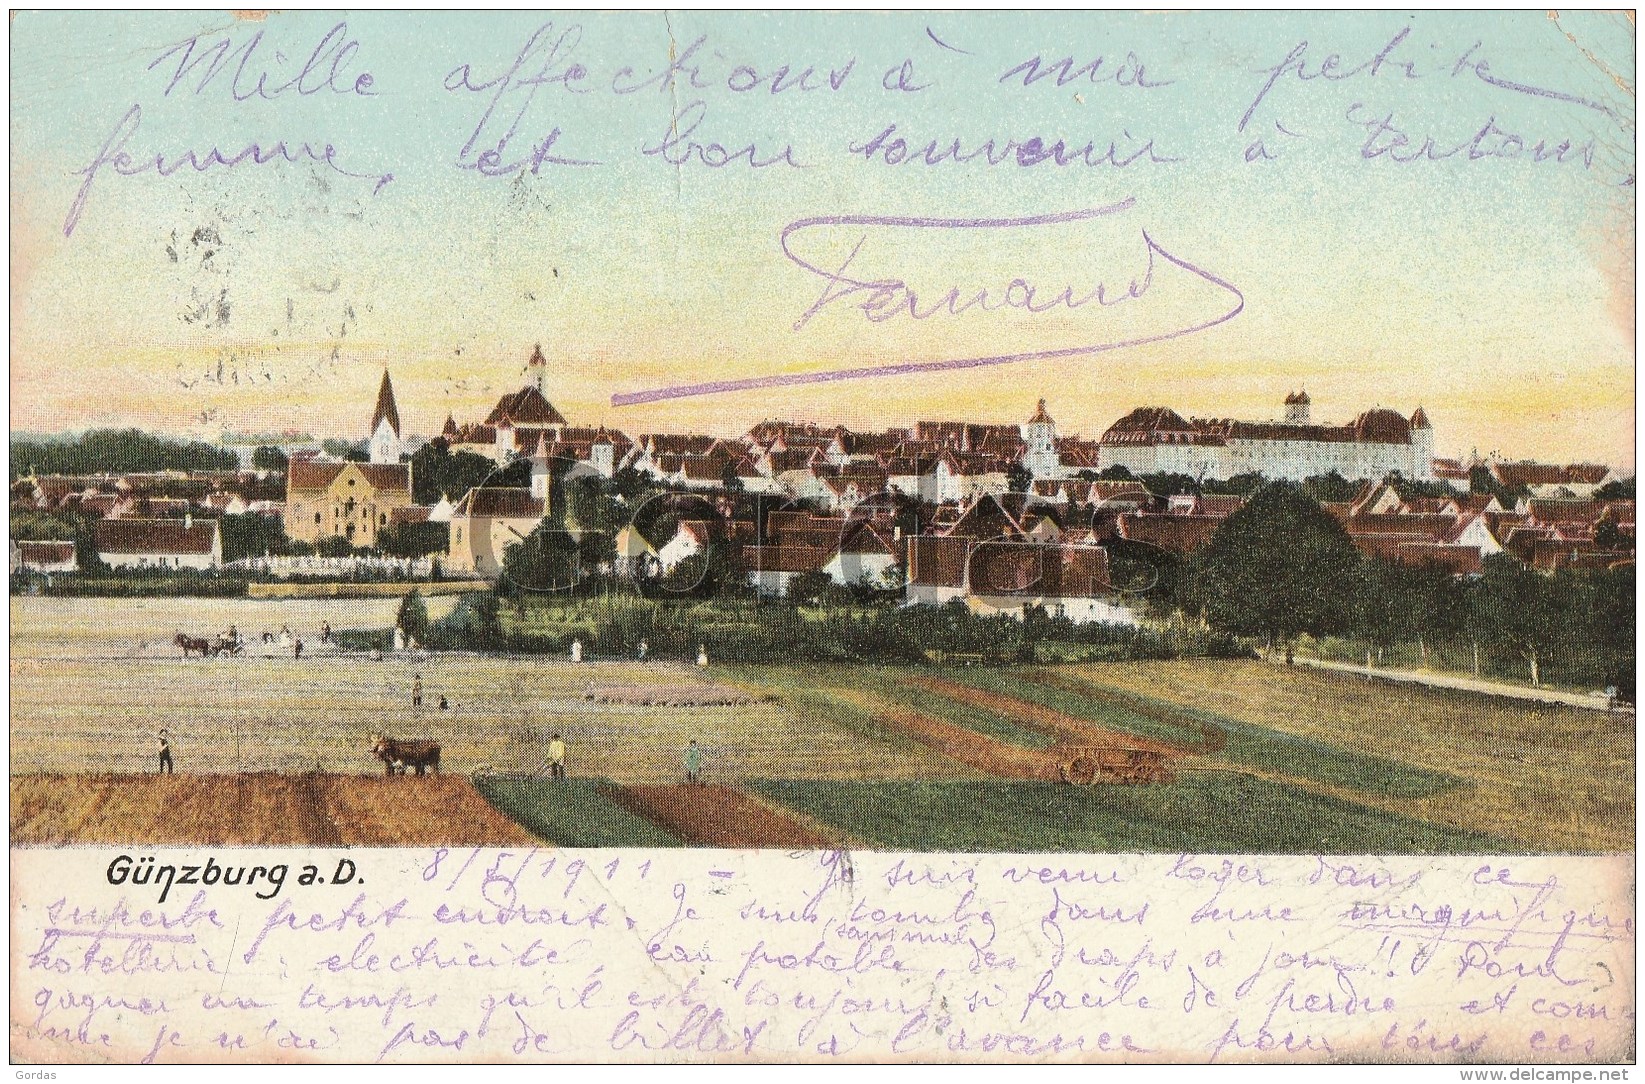 Mille affections à ma petite
femme, et bon souvenir à tertous,
Fernand
Gordas
Günzburg a. D. 8/5/1911 - Je suis venu loger dans ce
superbe petit endroit. Je suis tombé dans une magnifique
(sans mal)
hotellerie : électricité, eau potable, des draps à jour!! Pour
gagner un temps qu'il est toujours si facile de perdre et com-
me je n'ai pas de billet à l'avance pour tous ces
Gordas
www.delcampe.net